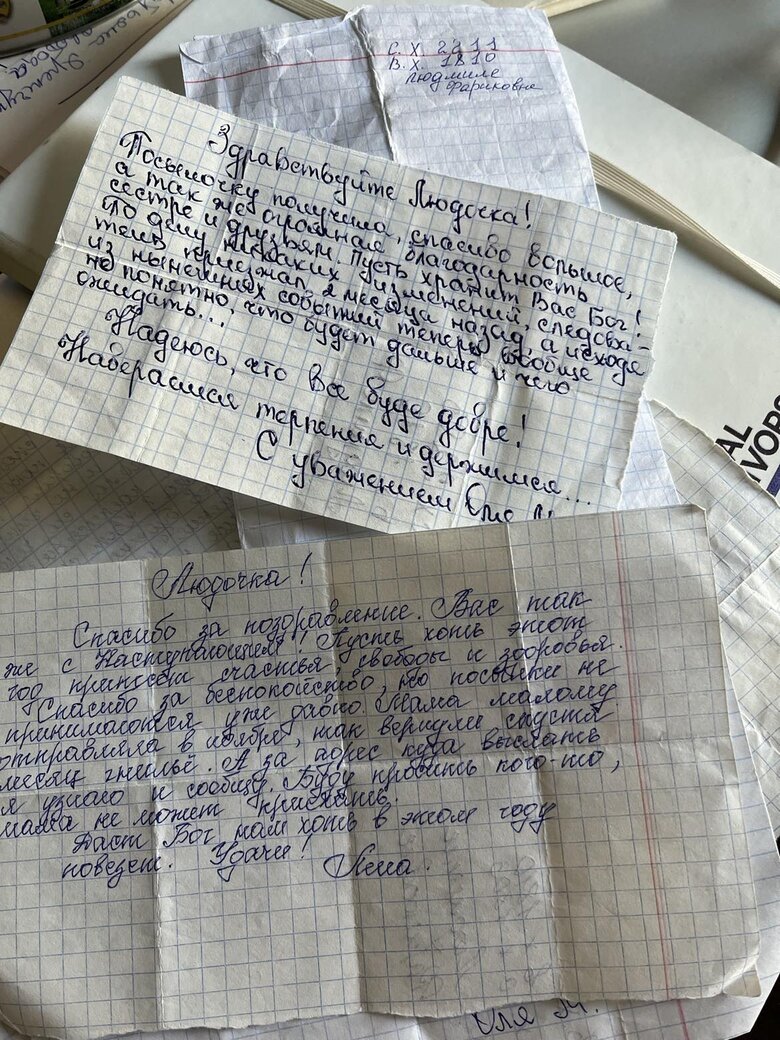 С. Х. 2911
В. Х. 1810
Людмиле
Фариковне
Здравствуйте Людочка!
Посылочку получила, спасибо большое,
а так же огромная благодарность
сестре и друзьям. Пусть хранит Вас Бог!
По делу никаких изменений, следова-
тель приезжал 2 месяца назад, а исходя
из нынешних событий теперь вообще
не понятно, что будет дальше и чего
ожидать...
Надеюсь, что все буде добре!
Набераемся терпения и держимся...
С уважением Оля М
AL
AVORS
Людочка!
Спасибо за поздравление. Вас так
же с Наступающим! Пусть хоть этот
год принесёт счастья, свободы и здоровья.
Спасибо за беспокойство, но посылки не
принимаются уже давно. Мама малому
отправляла в ноябре, так вернули спустя
месяц гнильё. А за адрес куда выслать
я узнаю и сообщу. Буду просить кого-то,
мама не может приехать.
Даст Бог нам хоть в этом году
повезет. Удачи! Лена.
Оля М.